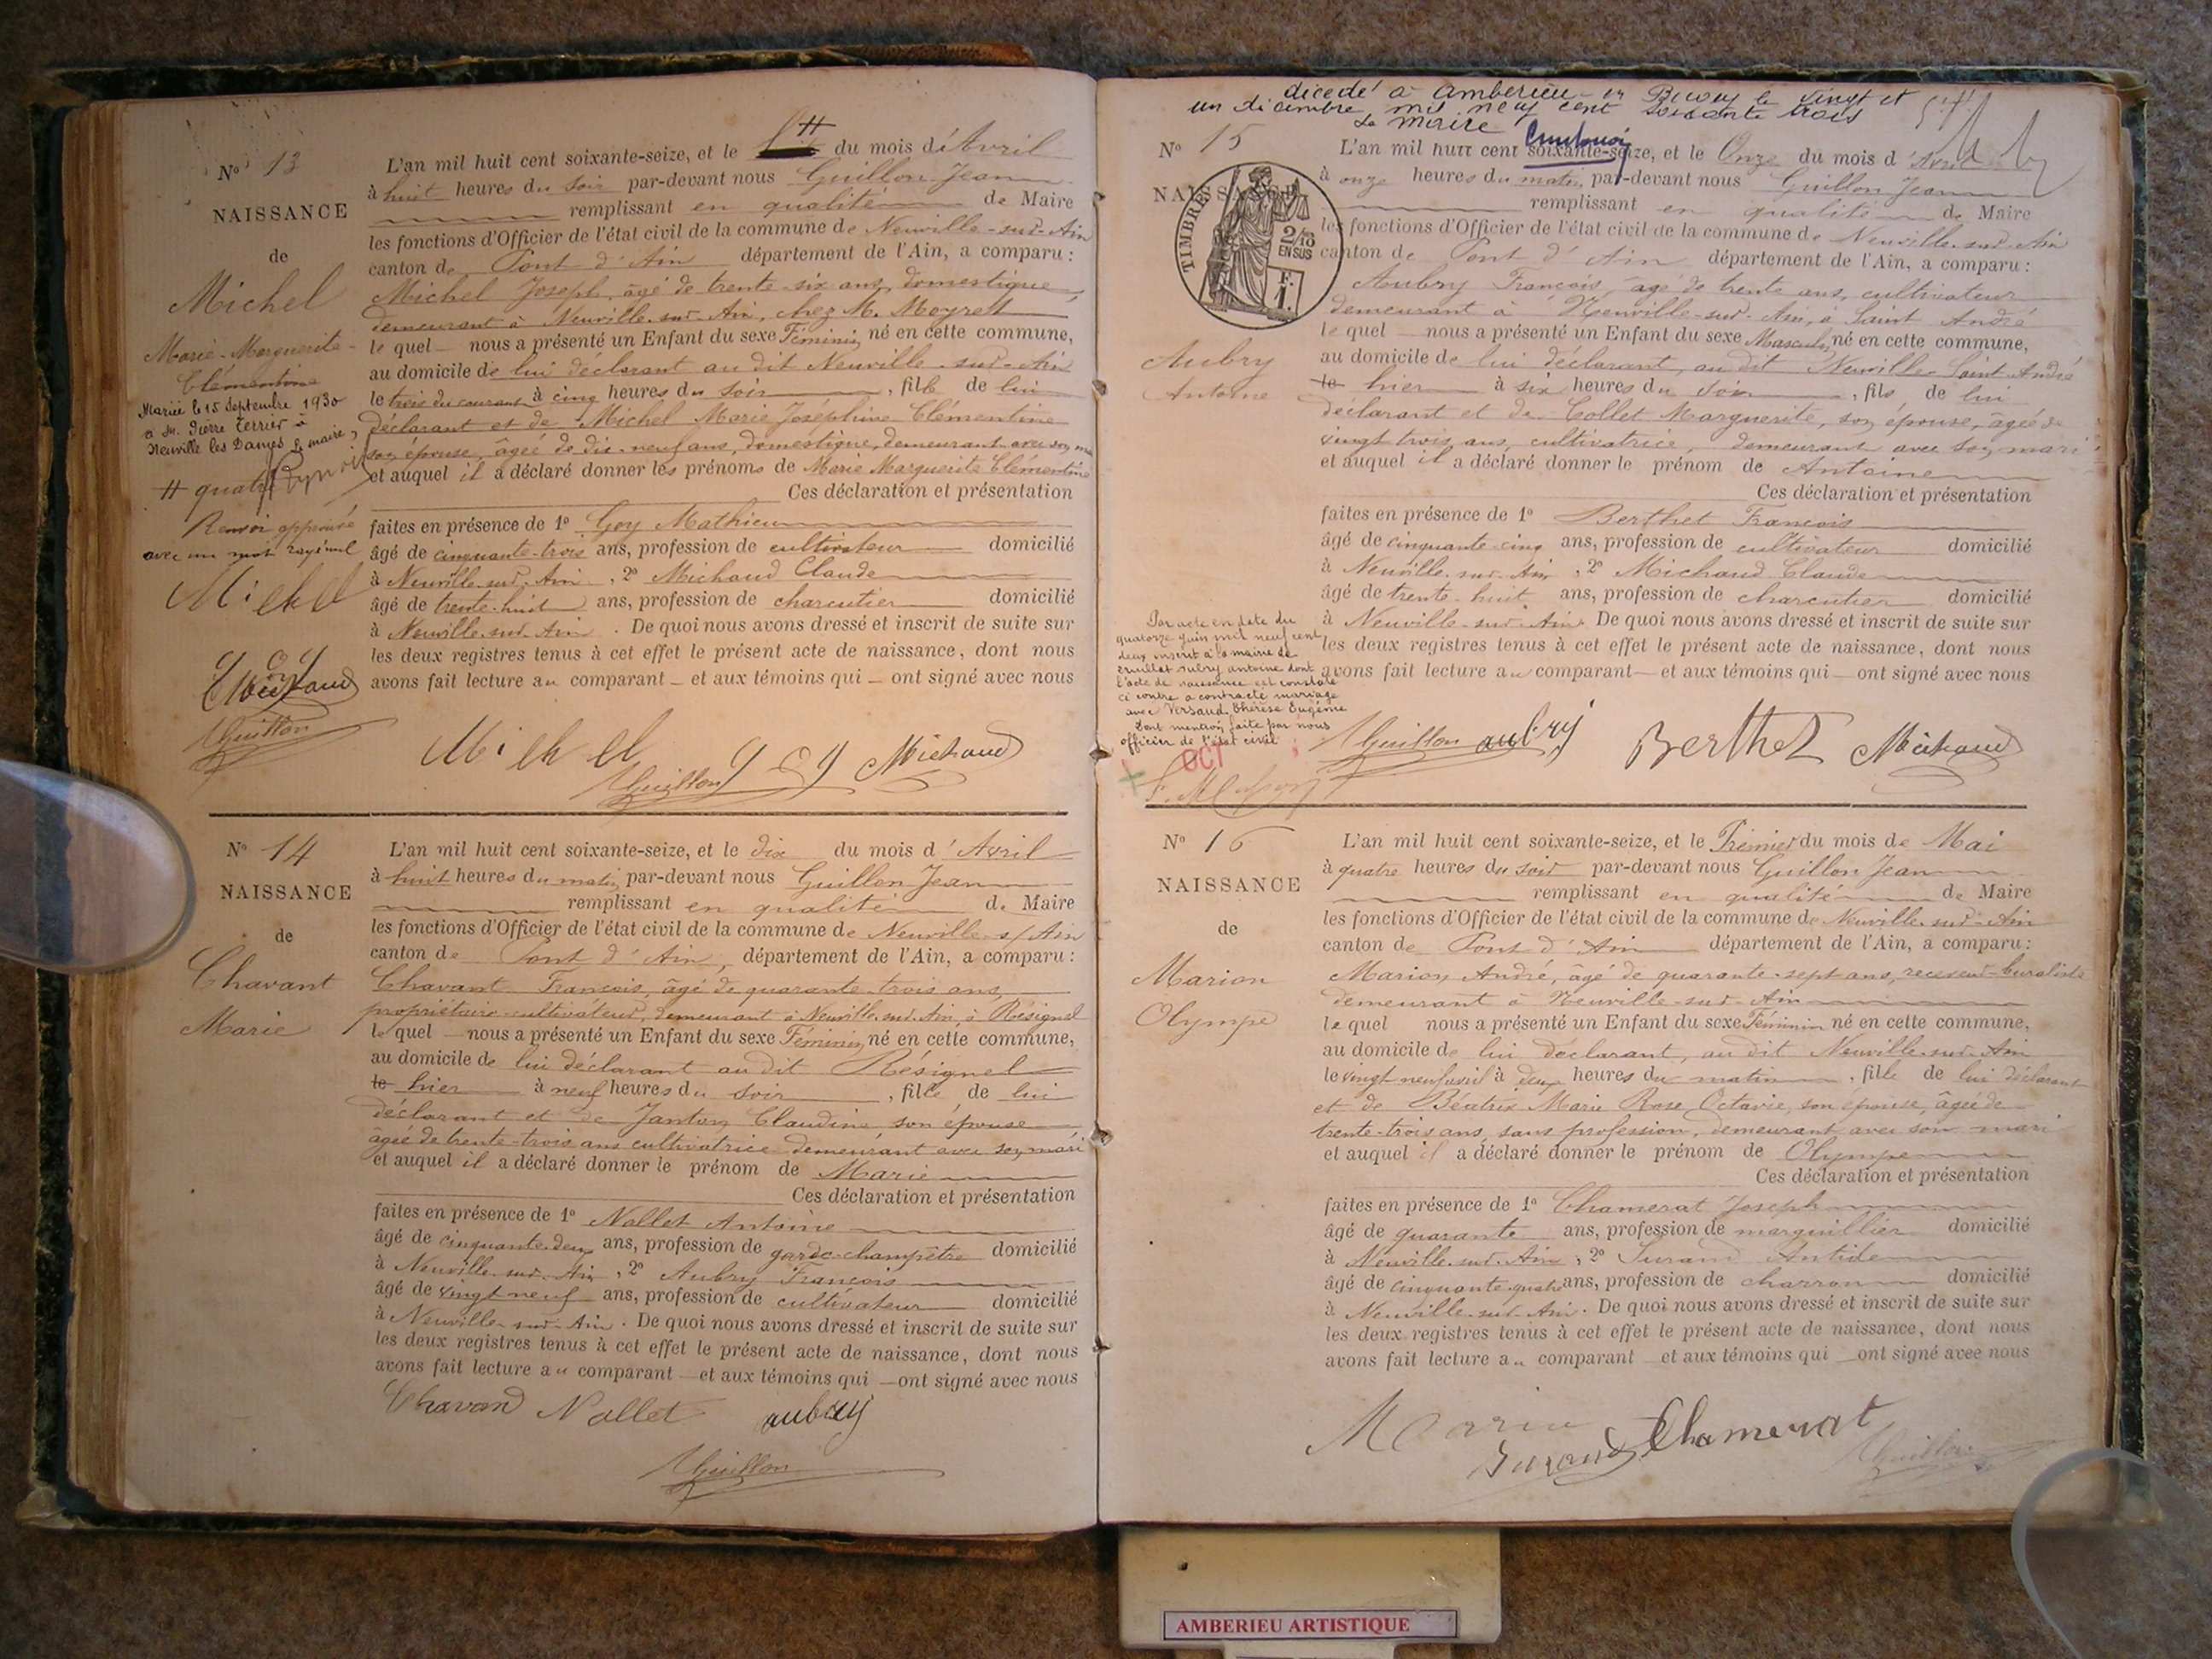 N° 13
NAISSANCE
de
Michel
Marie-Marguerite-
Clémentine
Mariée le 15 Septembre 1930
à M. Pierre Terrier à
Neuville les Dames Le maire,
# quatre
Renvoi approuvé
avec un mot rayé nul
Michel
Goy
Michaud
JGuillon
L'an mil huit cent soixante-seize, et le # du mois d'Avril
à huit heures du soir par-devant nous Guillon Jean
remplissant en qualité de Maire
les fonctions d'Officier de l'état civil de la commune de Neuville-sur-Ain
canton de Pont d'Ain département de l'Ain, a comparu :
Michel Joseph, âgé de trente-six ans, domestique,
demeurant à Neuville-sur-Ain, chez M. Moyrett
le quel nous a présenté un Enfant du sexe Féminin né en cette commune,
au domicile de lui déclarant au dit Neuville-sur-Ain
le trois du courant à cinq heures du soir, fille de lui
déclarant et de Michel Marie Joséphine Clémentine
son épouse, âgée de dix-neuf ans, domestique, demeurant avec son
et auquel il a déclaré donner les prénoms de Marie Marguerite Clémentine
Ces déclaration et présentation
faites en présence de 1° Goy Mathieu
âgé de cinquante-trois ans, profession de cultivateur domicilié
à Neuville-sur-Ain, 2° Michaud Claude
âgé de trente-huit ans, profession de charcutier domicilié
à Neuville-sur-Ain. De quoi nous avons dressé et inscrit de suite sur
les deux registres tenus à cet effet le présent acte de naissance, dont nous
avons fait lecture au comparant et aux témoins qui ont signé avec nous
Michel JGuillon Goy Michaud
N° 14
NAISSANCE
de
Chavant
Marie
L'an mil huit cent soixante-seize, et le dix du mois d'Avril
à huit heures du matin par-devant nous Guillon Jean
remplissant en qualité de Maire
les fonctions d'Officier de l'état civil de la commune de Neuville s/Ain
canton de Pont d'Ain, département de l'Ain, a comparu :
Chavant François, âgé de quarante-trois ans,
propriétaire-cultivateur, demeurant à Neuville-sur-Ain, à Résignel
le quel nous a présenté un Enfant du sexe Féminin né en cette commune,
au domicile de lui déclarant au dit Résignel
le hier à neuf heures du soir, fille de lui
déclarant et de Janton Claudine son épouse
âgée de trente-trois ans cultivatrice demeurant avec son mari
et auquel il a déclaré donner le prénom de Marie
Ces déclaration et présentation
faites en présence de 1° Nallet Antoine
âgé de cinquante-deux ans, profession de garde-champêtre domicilié
à Neuville-sur-Ain, 2° Aubry François
âgé de vingt neuf ans, profession de cultivateur domicilié
à Neuville-sur-Ain. De quoi nous avons dressé et inscrit de suite sur
les deux registres tenus à cet effet le présent acte de naissance, dont nous
avons fait lecture au comparant et aux témoins qui ont signé avec nous
Chavan Nallet aubry
JGuillon
décedé à Ambérieu-en Bugey le vingt et
un décembre mil neuf cent soixante trois
Le Maire
N° 15
NAISSANCE
TIMBRES
2/10
EN SUS
F.
1.
Aubry
Antoine
Par acte en date du
quatorze Juin mil neuf cent
deux inscrit à la mairie de
aubry antoine dont
l'acte de naissance est constaté
ci contre a contracté mariage
avec Versaud Thérèse Eugénie
Dont mention faite par nous
officier de l'état civil
OCT
L'an mil huit cent soixante-seize, et le Onze du mois d'Avril
à onze heures du matin par-devant nous Guillon Jean
remplissant en qualité de Maire
les fonctions d'Officier de l'état civil de la commune de Neuville-sur-Ain
canton de Pont d'Ain département de l'Ain, a comparu :
Aubry François, âgé de trente ans, cultivateur
demeurant à Neuville-sur-Ain, à Saint André
le quel nous a présenté un Enfant du sexe Masculin né en cette commune,
au domicile de lui déclarant, au dit Neuville-Saint André
le hier à six heures du soir, fils de lui
déclarant et de Collet Marguerite, son épouse, âgée de
vingt trois ans, cultivatrice, demeurant avec son mari
et auquel il a déclaré donner le prénom de Antoine
Ces déclaration et présentation
faites en présence de 1° Berthet François
âgé de cinquante-cinq ans, profession de cultivateur domicilié
à Neuville-sur-Ain, 2° Michaud Claude
âgé de trente-huit ans, profession de charcutier domicilié
à Neuville-sur-Ain. De quoi nous avons dressé et inscrit de suite sur
les deux registres tenus à cet effet le présent acte de naissance, dont nous
avons fait lecture au comparant et aux témoins qui ont signé avec nous
JGuillon aubry Berthet Michaud
N° 16
NAISSANCE
de
Marion
Olympe
L'an mil huit cent soixante-seize, et le Premier du mois de Mai
à quatre heures du soir par-devant nous Guillon Jean
remplissant en qualité de Maire
les fonctions d'Officier de l'état civil de la commune de Neuville-sur-Ain
canton de Pont d'Ain département de l'Ain, a comparu :
Marion André, âgé de quarante-sept ans, receveur-buraliste
demeurant à Neuville-sur-Ain
le quel nous a présenté un Enfant du sexe Féminin né en cette commune,
au domicile de lui déclarant, au dit Neuville-sur-Ain
le vingt neuf avril à deux heures du matin, fille de lui déclarant
et de Béatrix Marie Rose Octavie, son épouse, âgée de
trente-trois ans, sans profession, demeurant avec son mari
et auquel il a déclaré donner le prénom de Olympe
Ces déclaration et présentation
faites en présence de 1° Chamerat Joseph
âgé de quarante ans, profession de marguillier domicilié
à Neuville-sur-Ain, 2° Durand Antide
âgé de cinquante-quatre ans, profession de charron domicilié
à Neuville-sur-Ain. De quoi nous avons dressé et inscrit de suite sur
les deux registres tenus à cet effet le présent acte de naissance, dont nous
avons fait lecture au comparant et aux témoins qui ont signé avec nous
Marion Durand Chamerat JGuillon
AMBERIEU ARTISTIQUE